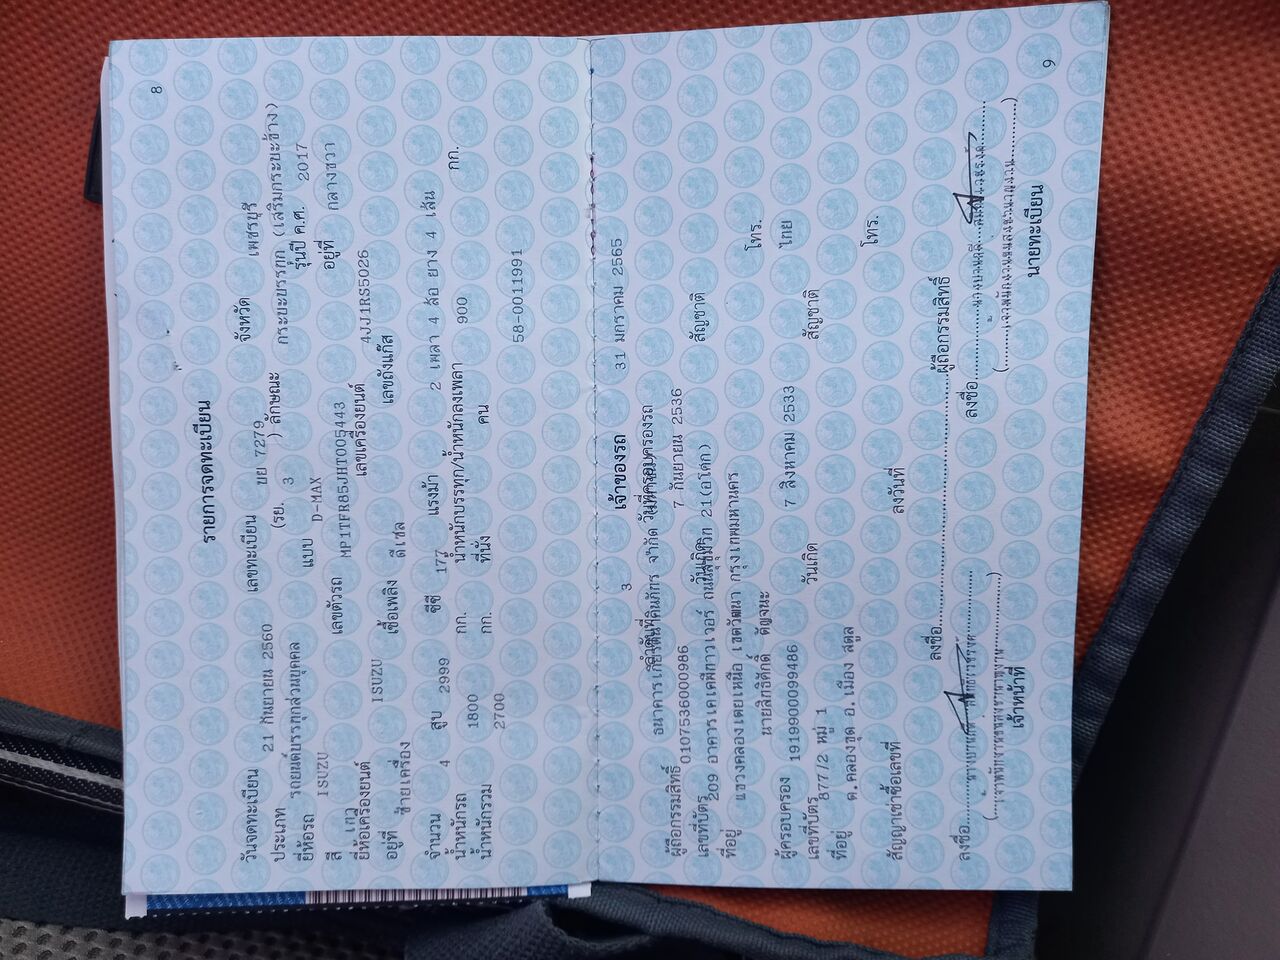 8
รายการจดทะเบียน
วันจดทะเบียน 21 กันยายน 2560 เลขทะเบียน ขย 7279 จังหวัด เพชรบุรี
ประเภท รถยนต์บรรทุกส่วนบุคคล (รย. 3 ) ลักษณะ กระบะบรรทุก (เสริมกระบะข้าง)
ยี่ห้อรถ ISUZU แบบ D-MAX รุ่นปี ค.ศ. 2017
สี เทา เลขตัวรถ MP1TFR85JHT005443 อยู่ที่ กลางขวา
ยี่ห้อเครื่องยนต์ ISUZU เลขเครื่องยนต์ 4JJ1RS5026
อยู่ที่ ซ้ายเครื่อง เชื้อเพลิง ดีเซล เลขถังแก๊ส
จำนวน 4 สูบ 2999 ซีซี 177 แรงม้า 2 เพลา 4 ล้อ ยาง 4 เส้น
น้ำหนักรถ 1800 กก. น้ำหนักบรรทุก/น้ำหนักลงเพลา 900 กก.
น้ำหนักรวม 2700 กก. ที่นั่ง คน
58-0011991
เจ้าของรถ
ลำดับที่ 3 วันที่ครอบครองรถ 31 มกราคม 2565
ผู้ถือกรรมสิทธิ์ ธนาคารเกียรตินาคินภัทร จำกัด (มหาชน)
เลขที่บัตร 0107536000986 วันเกิด 7 กันยายน 2536 สัญชาติ
ที่อยู่ 209 อาคารเคเคพีทาวเวอร์ ถนนสุขุมวิท 21(อโศก)
แขวงคลองเตยเหนือ เขตวัฒนา กรุงเทพมหานคร โทร.
ผู้ครอบครอง นายสิทธิศักดิ์
เลขที่บัตร 1919900099486 วันเกิด 7 สิงหาคม 2533 สัญชาติ ไทย
ที่อยู่ 877/2 หมู่ 1
ต.คลองขุด อ.เมือง สตูล โทร.
สัญญาเช่าซื้อเลขที่ ลงวันที่
ลงชื่อ ผู้ถือกรรมสิทธิ์
ลงชื่อ ลงชื่อ
เจ้าหน้าที่ นายทะเบียน
9